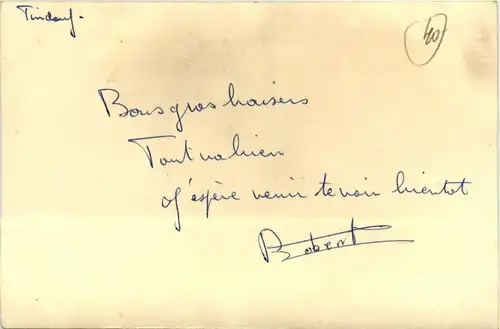 Tindouf.
40
Bons gros baisers
Tout va bien
J'espère venir te voir bientot
Robert